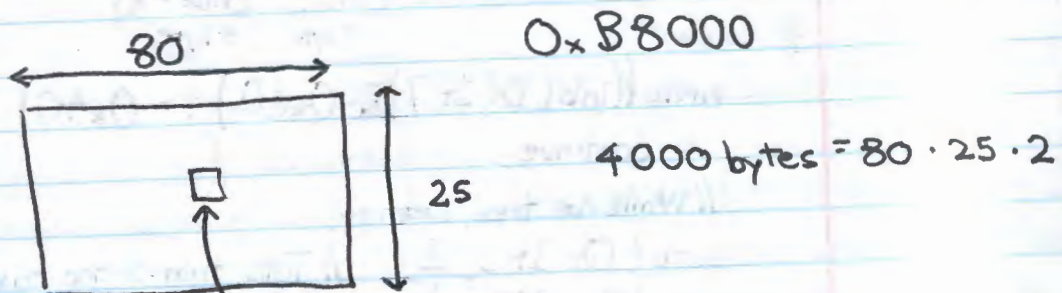 80
0xB8000
4000 bytes = 80 · 25 · 2
25